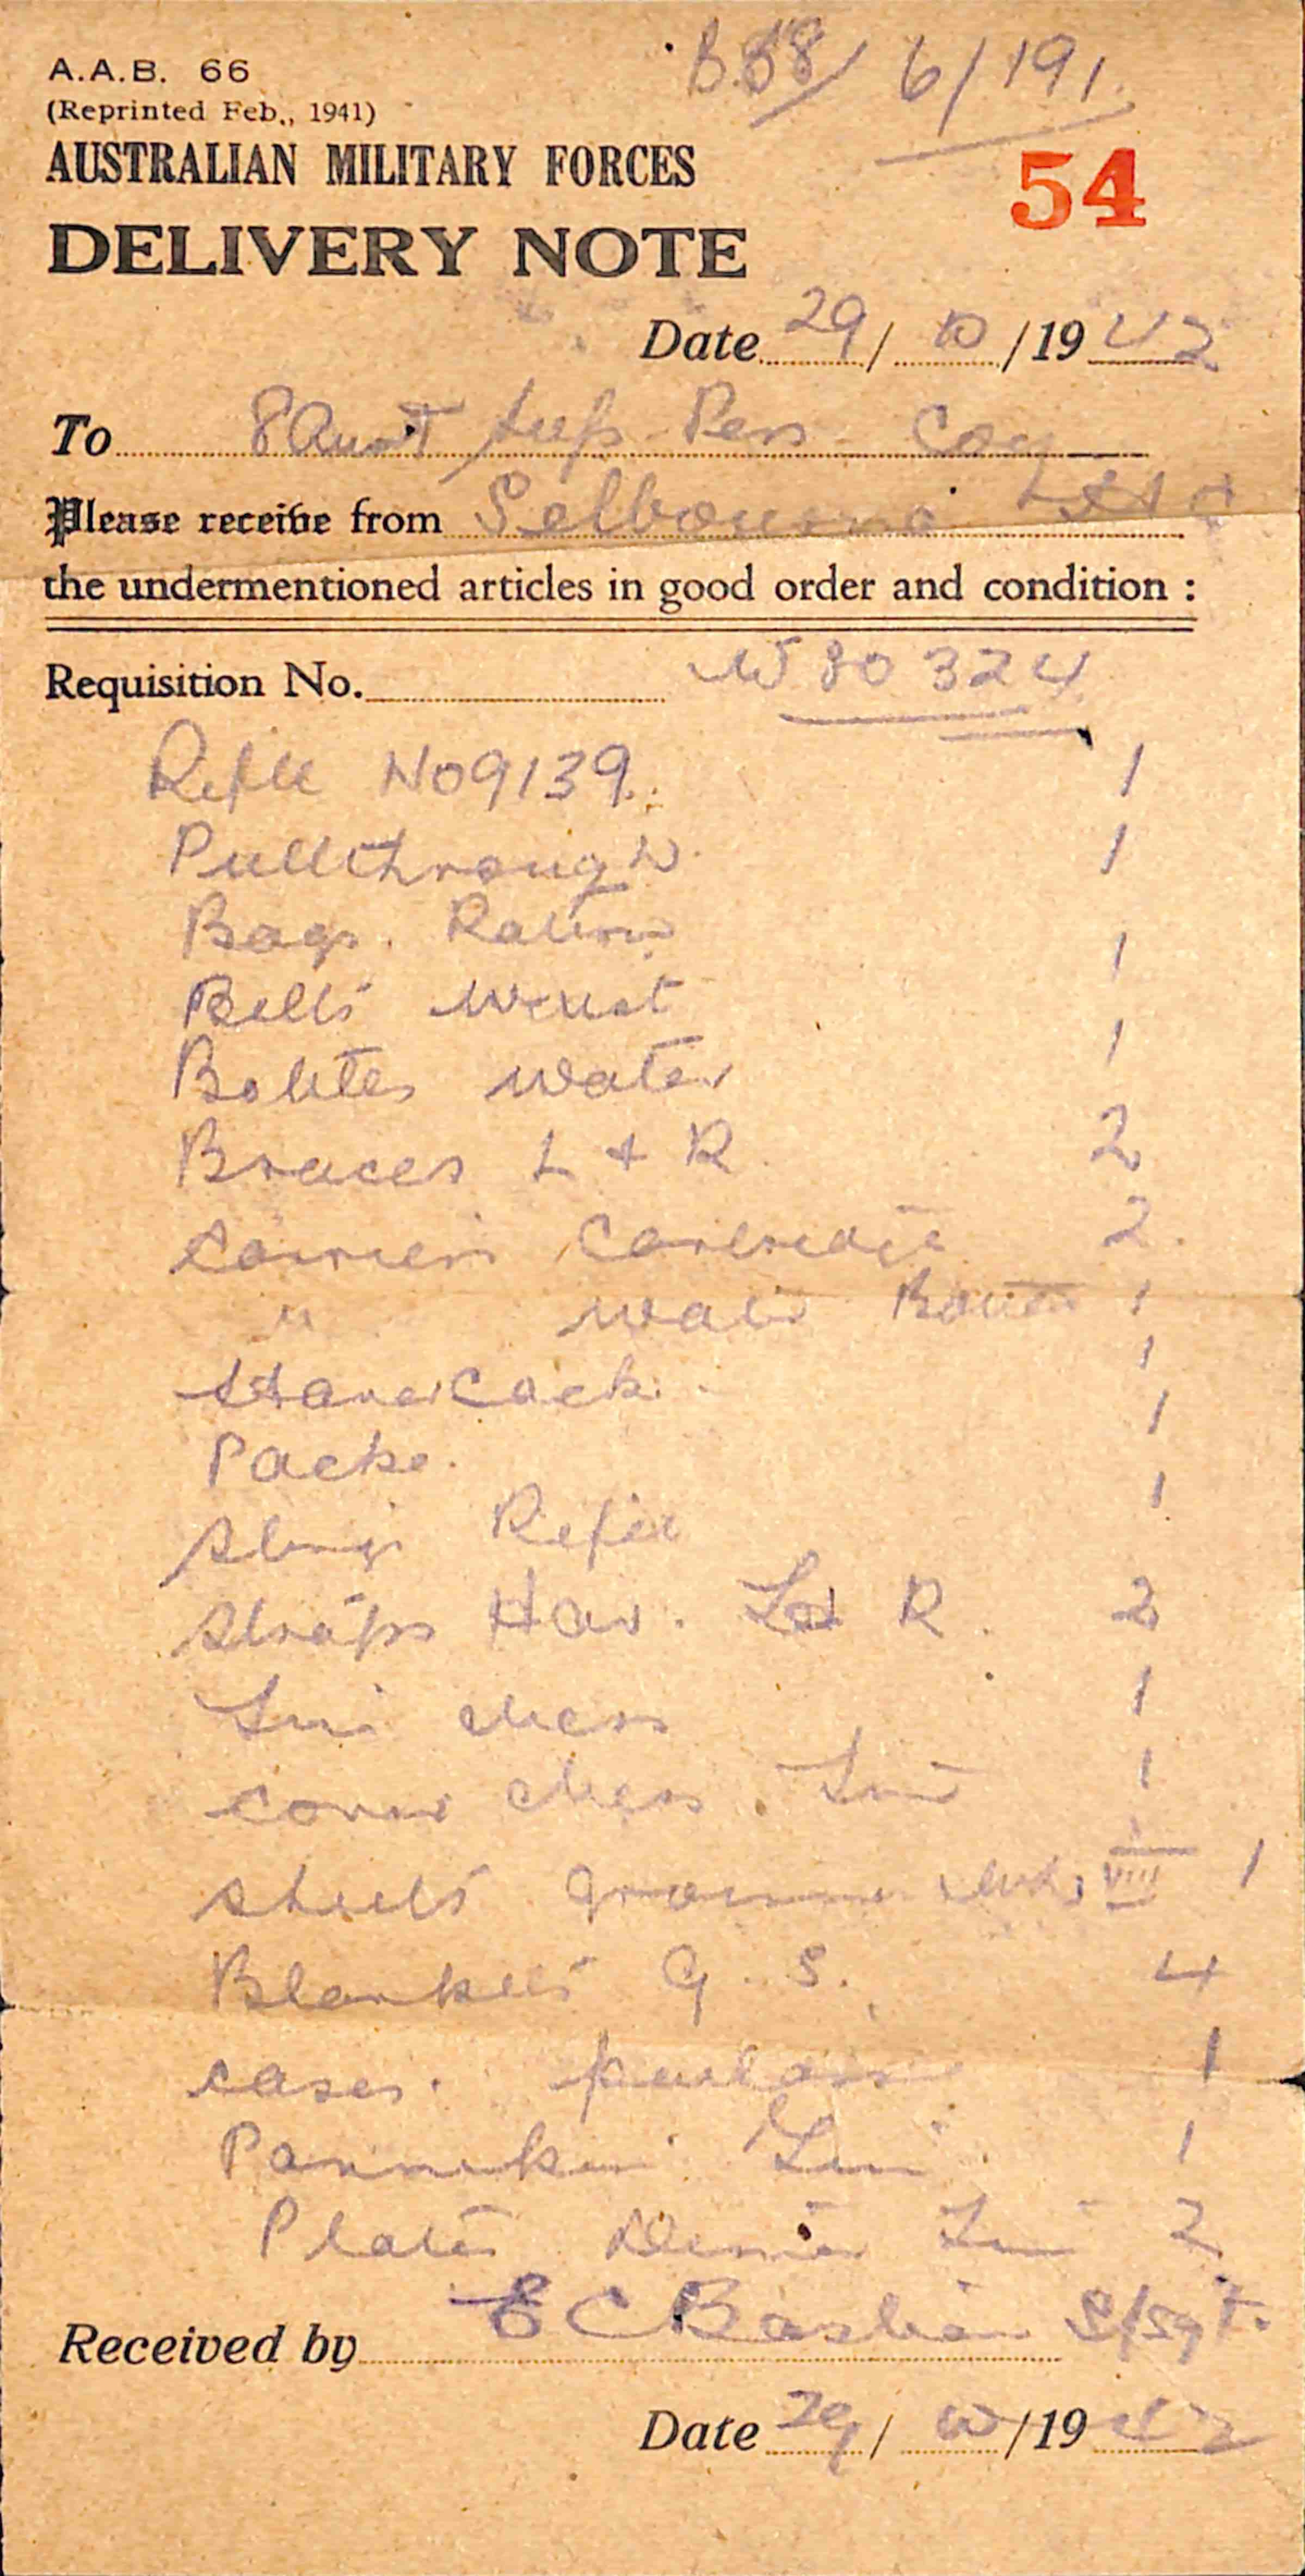 A.A.B. 66
(Reprinted Feb., 1941)
6/191.
AUSTRALIAN MILITARY FORCES
54
DELIVERY NOTE
Date 29/10/1942
To 8 Aust Pers Coy
Please receive from Selbourne
the undermentioned articles in good order and condition :
Requisition No. W80324
Rifle No9139. 1
Pullthrough 1
Bags. Ration 1
Belts Waist 1
Bottles water
Braces L + R. 2
Carriers Cartridge 2.
" Water Bottle 1
Haversack. 1
Packs. 1
Slings Rifle 1
Straps Hav. L & R. 2
Tin Mess 1
Cover Mess. Tin 1
Sheets Ground VIII 1
Blankets G.S. 4
Cases. 1
Pannikin Tin 1
Plates Dinner Tin 2
Received by E C S/Sgt.
Date 29/10/1942